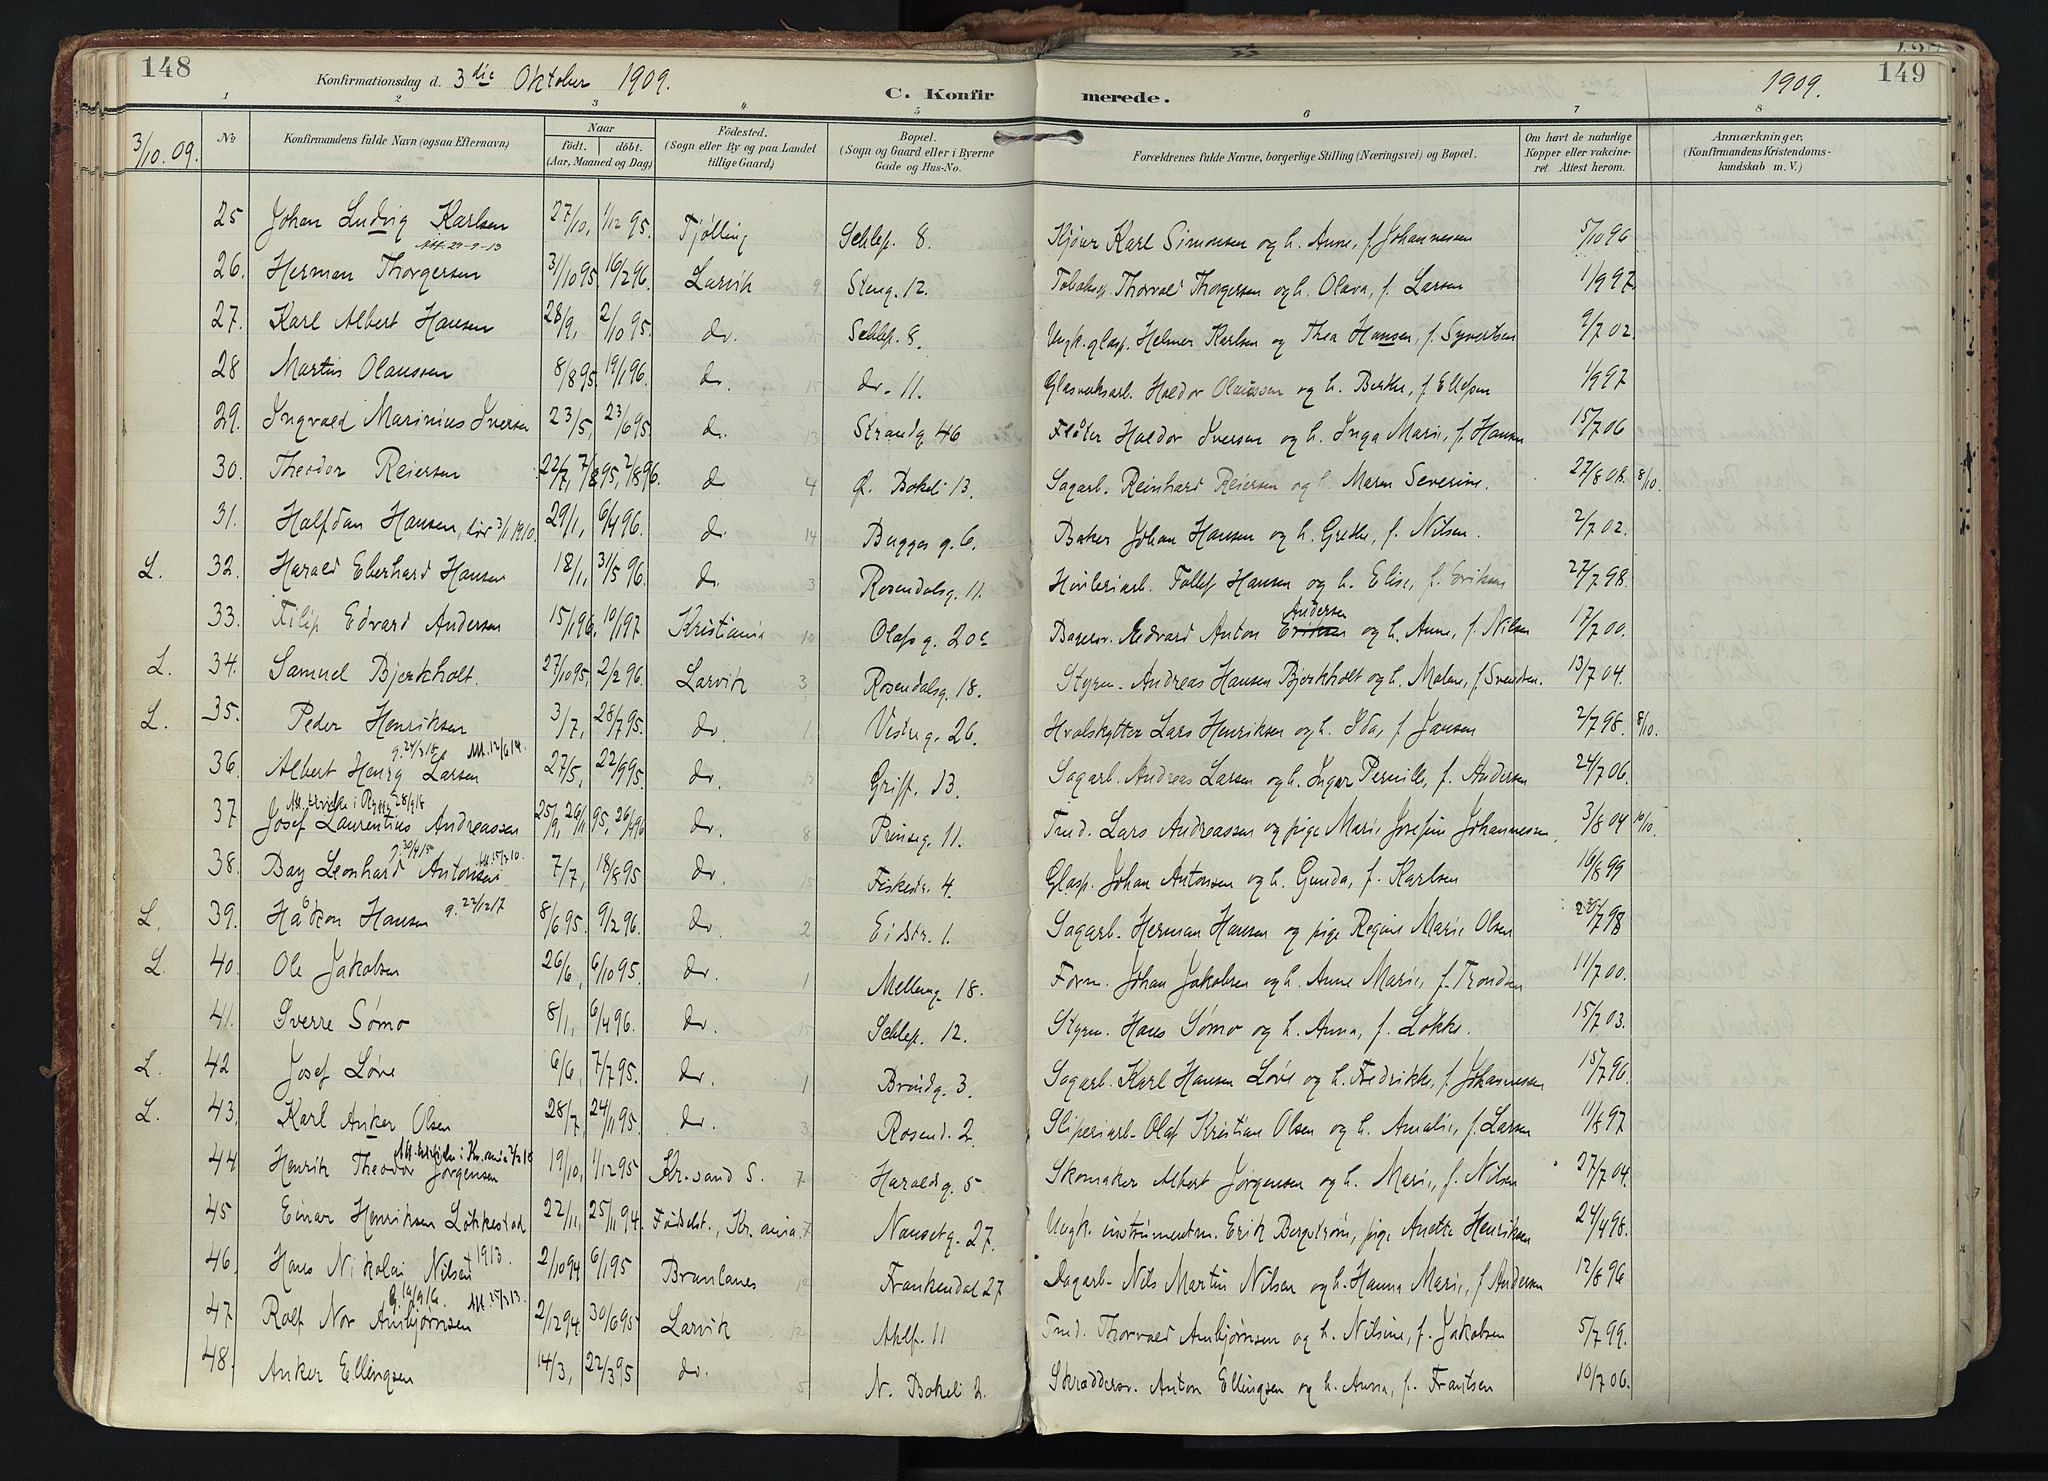 148
Konfirmationsdag d. 3die Oktober 1909.
C. Konfirmerede.
1909.
149
1 2 3 4 5 6 7 8
3/10.09.
No
Konfirmandens fulde Navn (ogsaa Efternavn)
Naar født. døbt. (Aar, Maaned og Dag)
Fødested. (Sogn eller By og paa Landet tillige Gaard)
Bopæl. (Sogn og Gaard eller i Byerne Gade og Hus-No.
Forældrenes fulde Navne, borgerlige Stilling (Næringsvei) og Bopæl.
Om havt de naturlige Kopper eller vakcineret Attest herom.
Anmærkninger. (Konfirmandens Kristendomskundskab m. V.)
25 Johan Ludvig Karlsen 27/10, 1/12 95. Tjølling Schlep. 8. Kjører Karl Simonsen og h. Anne, f. Johannesen 5/10 96
Att. 29-9-13
26. Herman Thorgersen 31/10 95. 16/2 96. Larvik 9 Steng. 12. Tobaksp. Thorvald Thorgersen og h. Olava, f. Larsen 1/9 97.
27. Karl Albert Hansen 28/9, 2/10 95. do. Schlep. 8. Ungk. glasp. Helmer Karlsen og Thea Hansen, f. Syvertsen 9/7 02.
28 Martin Olaussen 8/8 95. 19/1 96. do. 15 do. 11. Glasverksarb. Haldor Olaussen og h. Berthe, f. Ellefsen 1/9 97
29. Ingvald Marinius Iversen 23/5, 23/6 95. do. 13 Strandg 46 Fløter Haldor Iversen og h. Inga Marie, f. Hansen 15/7 06
30. Theodor Reiersen 22/7, 7/8 95, 2/8 96. do 4 Ø. Bokeli 13. Sagarb. Reinhard Reiersen og h. Maren Severine. 27/8 08. 8/10.
31. Halfdan Hansen, dør 3/1 1910. 29/1, 6/4 96. do 14 Bugges g. 6. Baker Johan Hansen og h. Grethe, f. Nilsen. 2/7 02.
L. 32. Harald Eberhard Hansen 18/1, 31/5 96. do. 3 Rosendalsg. 11. Høvleriarb. Tollef Hansen og h. Elise, f. Eriksen 27/7 98.
33. Filip Edvard Andersen 15/1 96, 10/1 97 Kristiania 10 Olafsg. 20c Bagersv. Edvard Anton Eriksen Andersen og h. Anne, f. Nilsen 17/7 00.
L. 34. Samuel Bjerkholt. 27/10 95. 2/2 96. Larvik 3 Rosendalsg. 18. Styrm. Andreas Hansen Bjerkholt og h. Malene, f. Svendsen. 13/7 04.
L. 35. Peder Henriksen 3/7, 28/7 95. do. 1. Vestreg. 26. Hvalskytter Lars Henriksen og h. Ida, f Jansen 2/7 98. 8/10.
g. 24/3 18 Att. 12/6 14.
36. Albert Henry Larsen 27/5, 22/9 95. do. Griff. 13. Sagarb. Andreas Larsen og h. Inger Pernille, f. Andersen 24/7 06.
28/9 18
37 Josef Laurentius Andreassen 25/9, 26/11 95, 26/4 96 do. 8 Prinseg. 11. Tmd. Lars Andreassen og pige Marie Josefine Johannessen. 3/8 04 10/10.
30/4 15 Att. 15/7 10.
38. Bay Leonhard Antonsen 7/7, 18/8 95 do. 15 Fiskestr. 4. Glasp. Johan Antonsen og h. Gunda, f. Karlsen 16/8 99
L. 39. Håkon Hansen g. 22/12 17 8/6 95. 9/2 96. do. 2 Eidstr. 1. Sagarb. Herman Hansen og pige Regine Marie Olsen 7 98
L. 40. Ole Jakobsen 26/6, 6/10 95. do. 1 Mellemg 18. Form. Johan Jakobsen og h. Anne Marie, f. Trondsen 11/7 00.
41. Sverre Sømo 8/1, 6/4 96. do. 15 Schlep. 12. Styrm. Hans Sømo og h. Anna, f. Løkke. 15/7 03.
L. 42 Josef Løve 6/6, 7/7 95. do. 1 Brandg. 3. Sagarb. Karl Hansen Løve og h. Fredrikke, f. Johannessen 15/7 96.
L. 43. Karl Anker Olsen 28/7, 24/11 95. do. 3 Rosend. 2. Sliperiarb. Olaf Kristian Olsen og h. Amalie, f. Larsen 11/8 97
44 Henrik Theodor Jørgensen 19/10, 1/12 95 Kr.sand S. 7 Haraldsg. 5 Skomaker Albert Jørgensen og h. Marie, f. Nilsen 27/7 04.
45 Einar Henriksen Løkkestad 22/11, 25/11 94. Fødselst., Kr.ania 7 Nansetg. 27. Ungk. instrumentm. Erik Bergstrøm, pige Anette Henriksen 24/4 98.
46. Hans Nikolai Nilsen † 1913. 2/10 94 6/1 95 Brunlanes Frankendal 27 Dagarb. Nils Martin Nilsen og h. Hanna Marie, f Andersen 12/8 96
g. 19/9 16. Att. 25/3 13.
47 Rolf Nor Ambjørnsen 2/12 94. 30/6 95. Larvik 12 Ahlf. 11 Tmd. Thorvald Ambjørnsen og h. Nilsine, f. Jakobsen 5/7 99.
48. Anker Ellingsen 14/3, 22/3 95 do. 5 N. Bokeli 2. Skræddersv. Anton Ellingsen og h. Anna, f. Frantsen 10/7 06.